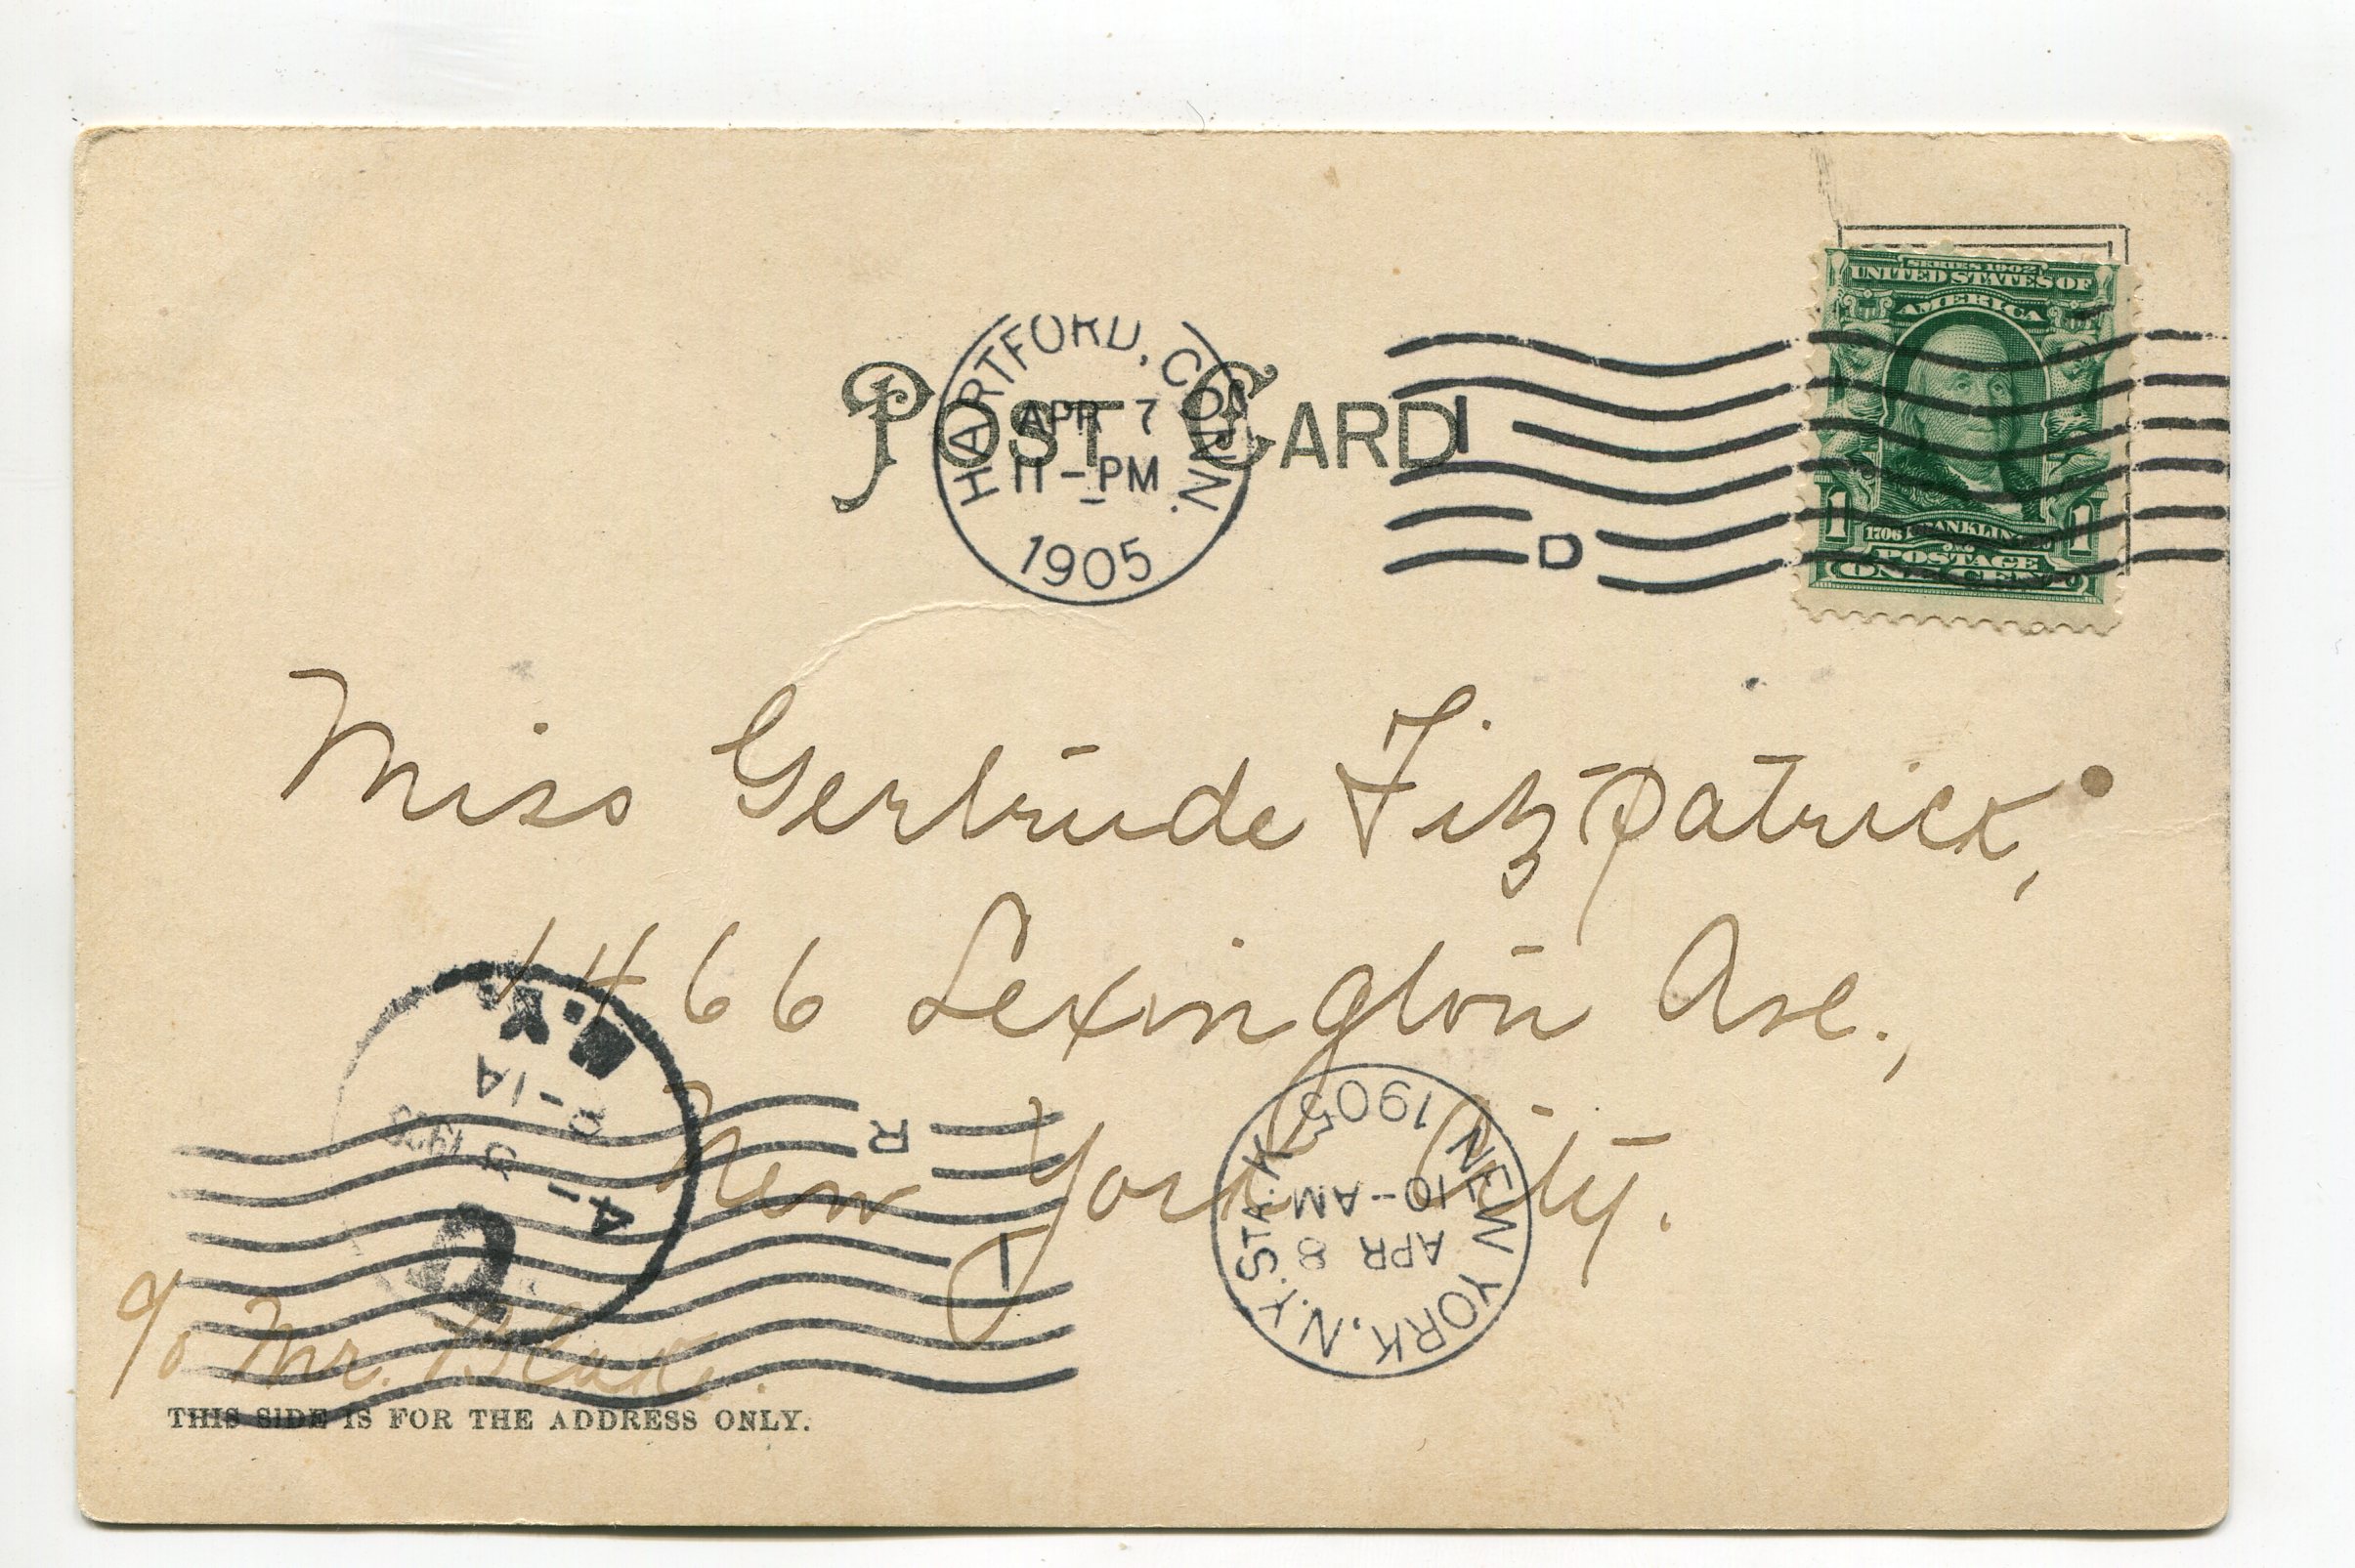 SERIES 1902
UNITED STATES OF
AMERICA
1 1706 FRANKLIN 1
POSTAGE
ONE CENT
HARTFORD, CONN.
APR 7
11-PM
1905
POST CARD
1
D
Miss Gertrude Fitzpatrick,
1466 Lexington Ave.,
New York City.
c/o Mr. Blake.
R
1
N.Y.
-1A
4-
NEW YORK, N.Y. STA. K
APR 8
10-AM
1905
THIS SIDE IS FOR THE ADDRESS ONLY.